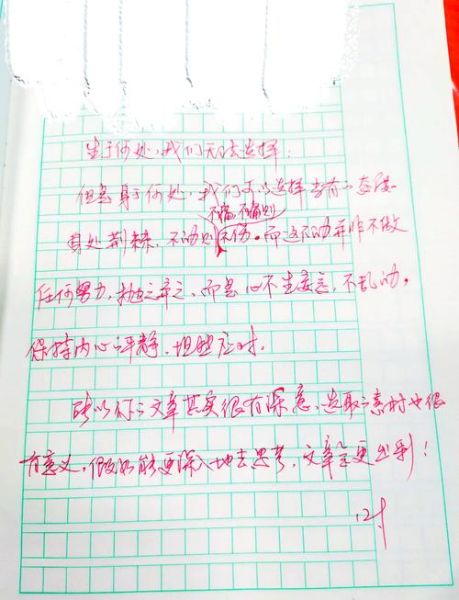 生于何处,我们无法选择;
但是身于何处,我们可以选择当有之态度
不痛,不痛则
身处荆棘,不动则不伤。而这不动并非不做
任何努力,抛之弃之,而是心不生妄念,不乱动,
保持内心之平静,坦然应对。
所以你之文章其实很有深意,选取之素材也很
有意义,假如能更深入地去思考,文章会更出彩!